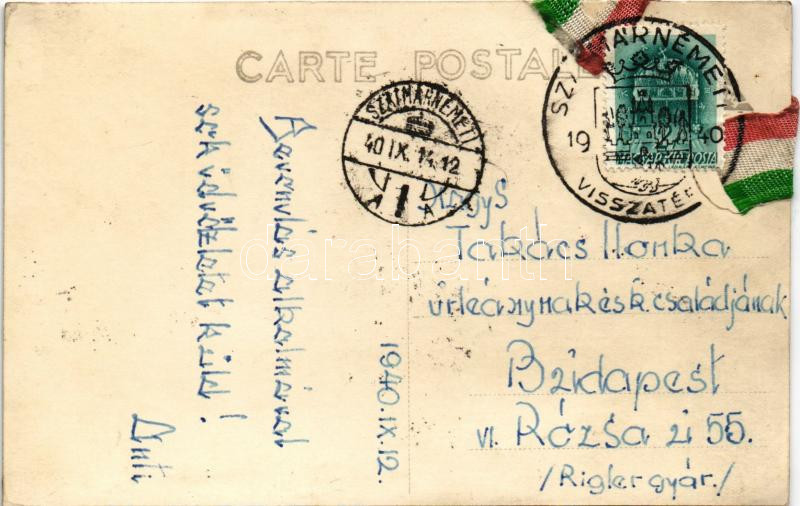 CARTE POSTALE
SZATMÁRNÉMETI
40 IX. 14. 12
1
SZATMÁRNÉMETI
19 40
VISSZATÉRT
MAGYAR POSTA
Nagys
Takács Ilonka
úrleánynak és k. családjának
Budapest
VI. Rózsa u 55.
/Rigler gyár./
1940.IX.12.
alkalmával
szív üdvözletet küld!
Anti
darabanth